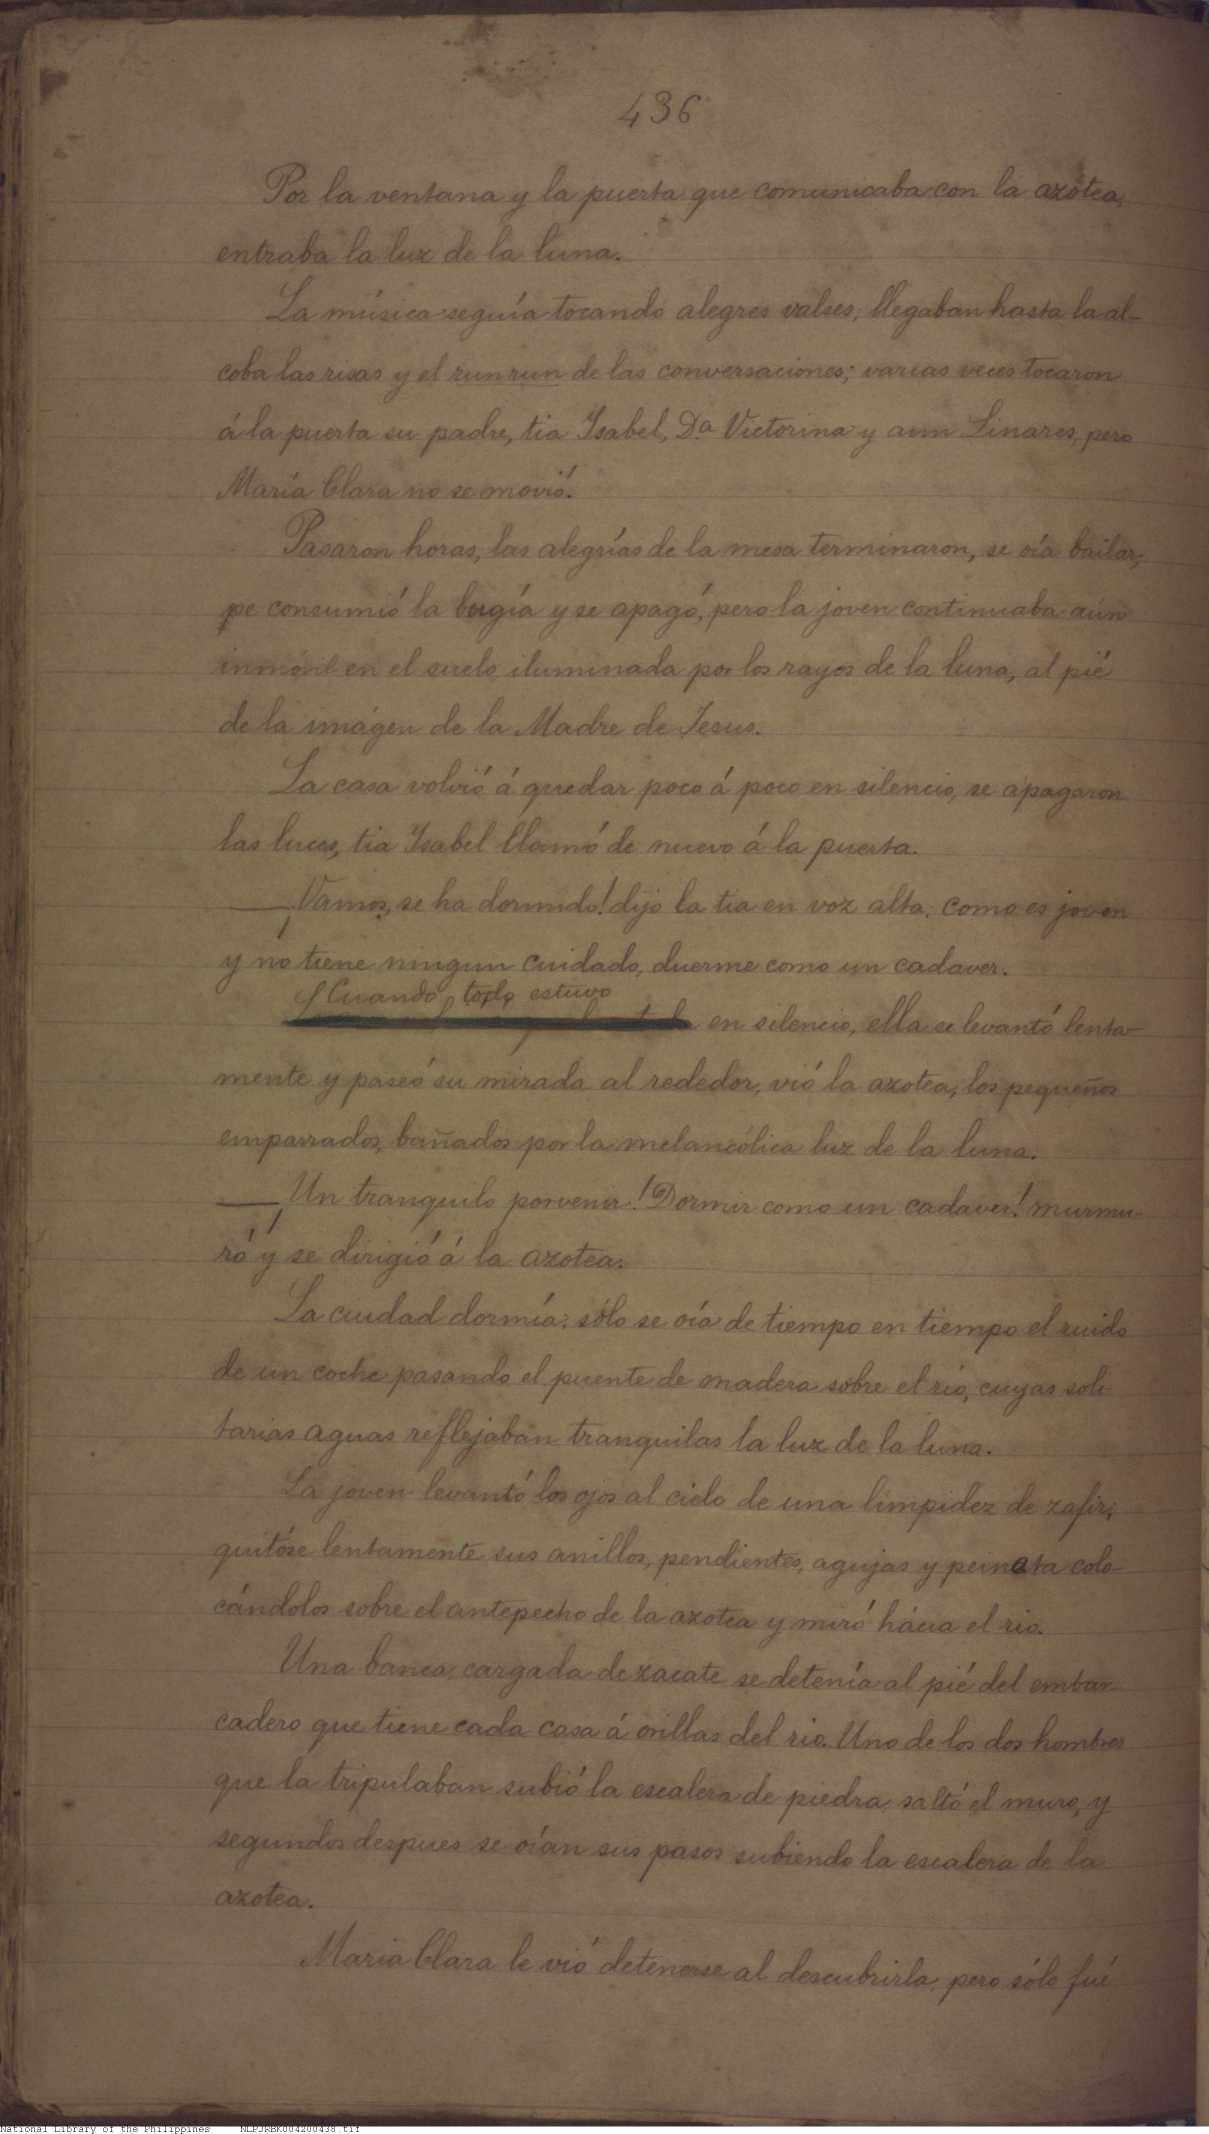 436
Por la ventana y la puerta que comunicaba con la azotea,
entraba la luz de la luna.
La música seguía tocando alegres valses; llegaban hasta la al-
coba las risas y el runrun de las conversaciones; varias veces tocaron
á la puerta su padre, tia Isabel, Dª Victorina y aun Linares, pero
María Clara no se movió.
Pasaron horas, las alegrías de la mesa terminaron, se oía bailar,
se consumió la bugía y se apagó, pero la joven continuaba aún
inmóvil en el suelo iluminada por los rayos de la luna, al pié
de la imágen de la Madre de Jesus.
La casa volvió á quedar poco á poco en silencio, se apagaron
las luces, tia Isabel llamó de nuevo á la puerta.
—¡Vamos, se ha dormido! dijo la tia en voz alta; como es joven
y no tiene ningun cuidado, duerme como un cadaver.
Cuando todo estuvo
en silencio, ella se levantó lenta-
mente y paseó su mirada al rededor, vió la azotea, los pequeños
emparrados, bañados por la melancólica luz de la luna.
—¡Un tranquilo porvenir! ¡Dormir como un cadaver! murmu-
ró y se dirigió á la azotea.
La ciudad dormía; sólo se oía de tiempo en tiempo el ruido
de un coche pasando el puente de madera sobre el rio, cuyas soli-
tarias aguas reflejaban tranquilas la luz de la luna.
La joven levantó los ojos al cielo de una limpidez de zafir;
quitóse lentamente sus anillos, pendientes, agujas y peineta colo-
cándolos sobre el antepecho de la azotea y miró hácia el rio.
Una banca, cargada de zacate se detenía al pié del embar-
cadero que tiene cada casa á orillas del rio. Uno de los dos hombres
que la tripulaban subió la escalera de piedra, saltó el muro, y
segundos despues se oían sus pasos subiendo la escalera de la
azotea.
Maria Clara le vió detenerse al descubrirla, pero sólo fué
National Library of the Philippines NLPJRBK004200438.tif